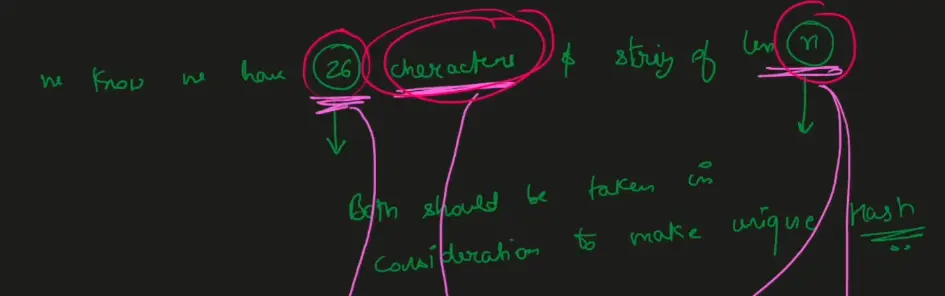 we know we have 26 characters & string of len n
Both should be taken in
consideration to make unique Hash